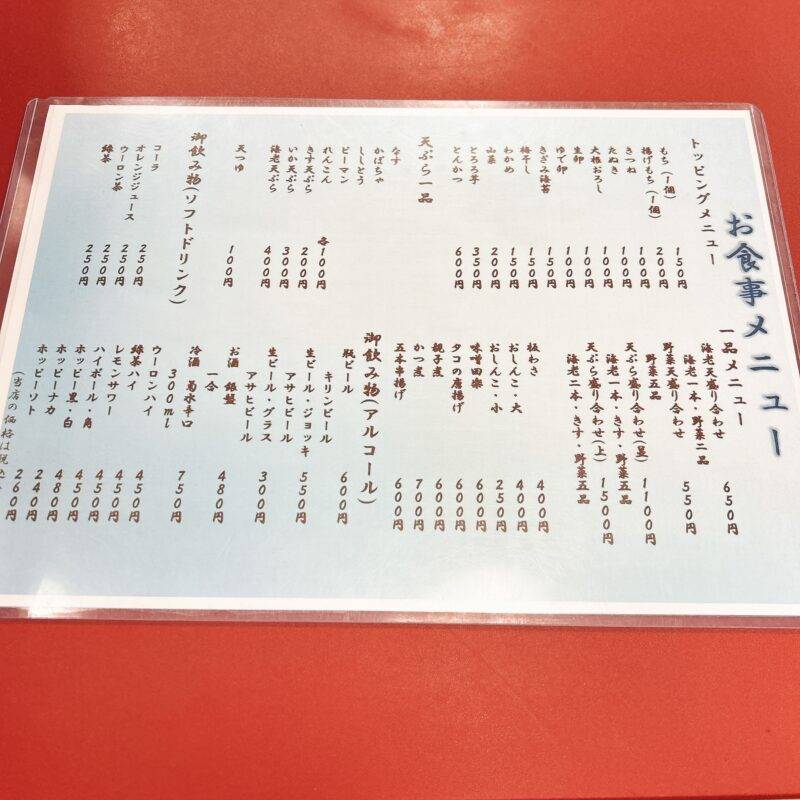 お食事メニュー
トッピングメニュー
もち(1個) 150円
揚げもち(1個) 200円
きつね 100円
たぬき 100円
大根おろし 100円
生卵 100円
ゆで卵 100円
きざみ海苔 150円
梅干し 150円
わかめ 150円
山菜 200円
とろろ芋 350円
とんかつ 600円
天ぷら一品
なす
かぼちゃ
ししとう
ピーマン
れんこん 各100円
きす天ぷら 200円
いか天ぷら 300円
海老天ぷら 400円
天つゆ 100円
御飲み物(ソフトドリンク)
コーラ 250円
オレンジジュース 250円
ウーロン茶 250円
緑茶 250円
一品メニュー
海老天盛り合わせ 650円
海老一本・野菜二品
野菜天盛り合わせ 550円
野菜五品
天ぷら盛り合わせ(並) 1100円
海老一本・きす・野菜五品
天ぷら盛り合わせ(上) 1500円
海老二本・きす・野菜五品
板わさ 400円
おしんこ・大 400円
おしんこ・小 250円
味噌田楽 600円
タコの唐揚げ 600円
親子煮 600円
かつ煮 700円
五本串揚げ 600円
御飲み物(アルコール)
瓶ビール
キリンビール 600円
生ビール・ジョッキ
アサヒビール 550円
生ビール・グラス
アサヒビール 300円
お酒 銀盤
一合 480円
冷酒 菊水辛口
300ml 750円
ウーロンハイ 450円
緑茶ハイ 450円
レモンサワー 450円
ハイボール・角 450円
ホッピー黒・白 480円
ホッピーナカ 240円
ホッピーソト 260円
(当店の価格は税込